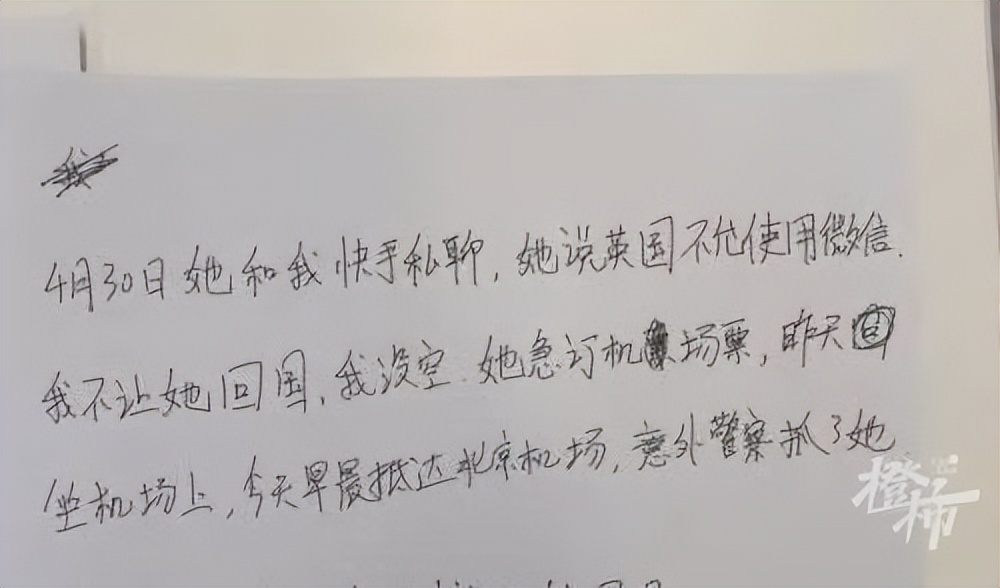 4月30日她和我快手私聊，她说英国不允使用微信.
我不让她回国，我没空.她急订机场票，昨天
坐机场上，今天早晨抵达北京机场，意外警察抓了她
橙柿